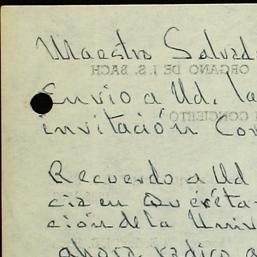 Maestro Salvad
ORGANO DE J.S. BACH
Envio a Ud. la
N CONCIERTO
invitación Con
Recuerdo a Ud
cia en Queréta-
ción de la Univ
ahora radico a